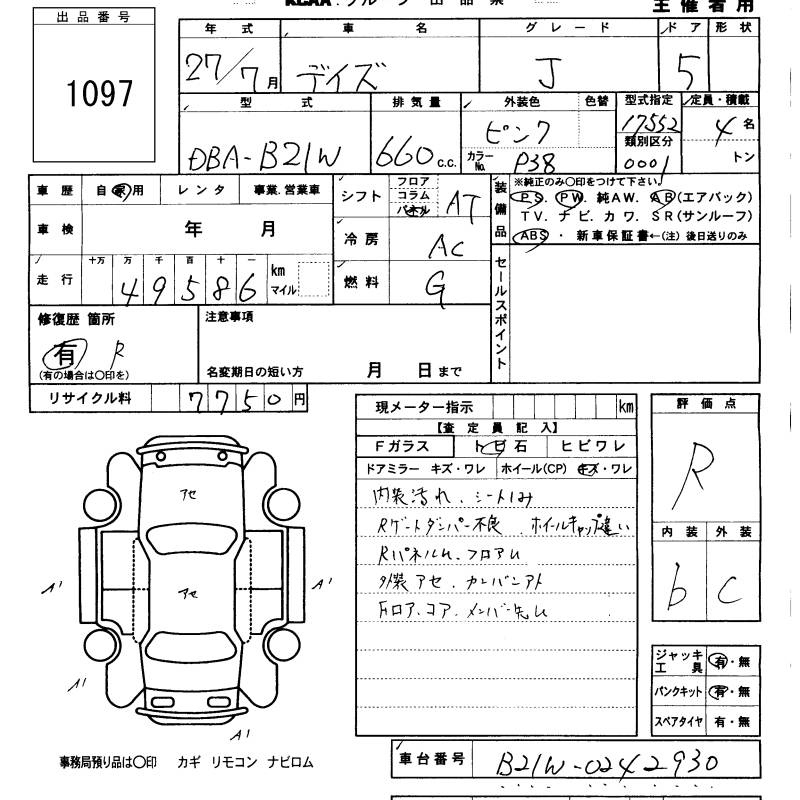 KCAA グループ 出品票
主催者用
出品番号
1097
年式 車名 グレード ドア 形状
27/7月 デイズ J 5
型式 排気量 外装色 色替 型式指定 定員・積載
DBA-B21W 660c.c. ピンク 17552 4名
カラーNo. P38 類別区分 0001 トン
車歴 自家用 レンタ 事業.営業車
車検 年 月
走行 十万 万 千 百 十 一
49586 km マイル
シフト フロア コラム パネル AT
冷房 AC
燃料 G
装備品 ※純正のみ○印をつけて下さい。
PS. PW. 純AW. AB(エアバック)
TV. ナビ. カワ. SR(サンルーフ)
ABS ・ 新車保証書←(注) 後日送りのみ
セールスポイント
修復歴 箇所
有 R
(有の場合は○印を)
注意事項
名変期日の短い方 月 日まで
リサイクル料 7750円
現メーター指示 km
【査定員記入】
Fガラス トビ石 ヒビワレ
ドアミラー キズ・ワレ ホイール(CP) キズ・ワレ
内装汚れ、シートしみ
Rゲートダンパー不良 ホイールキャップ違い
RパネルU、フロアU
外装アセ、カンバンアト
Fロア、コア、メンバー先U
評価点
R
内装 外装
b C
ジャッキ工具 有・無
パンクキット 有・無
スペアタイヤ 有・無
アセ
アセ
A'
A'
A'
A'
事務局預り品は○印 カギ リモコン ナビロム
車台番号 B21W-0242930